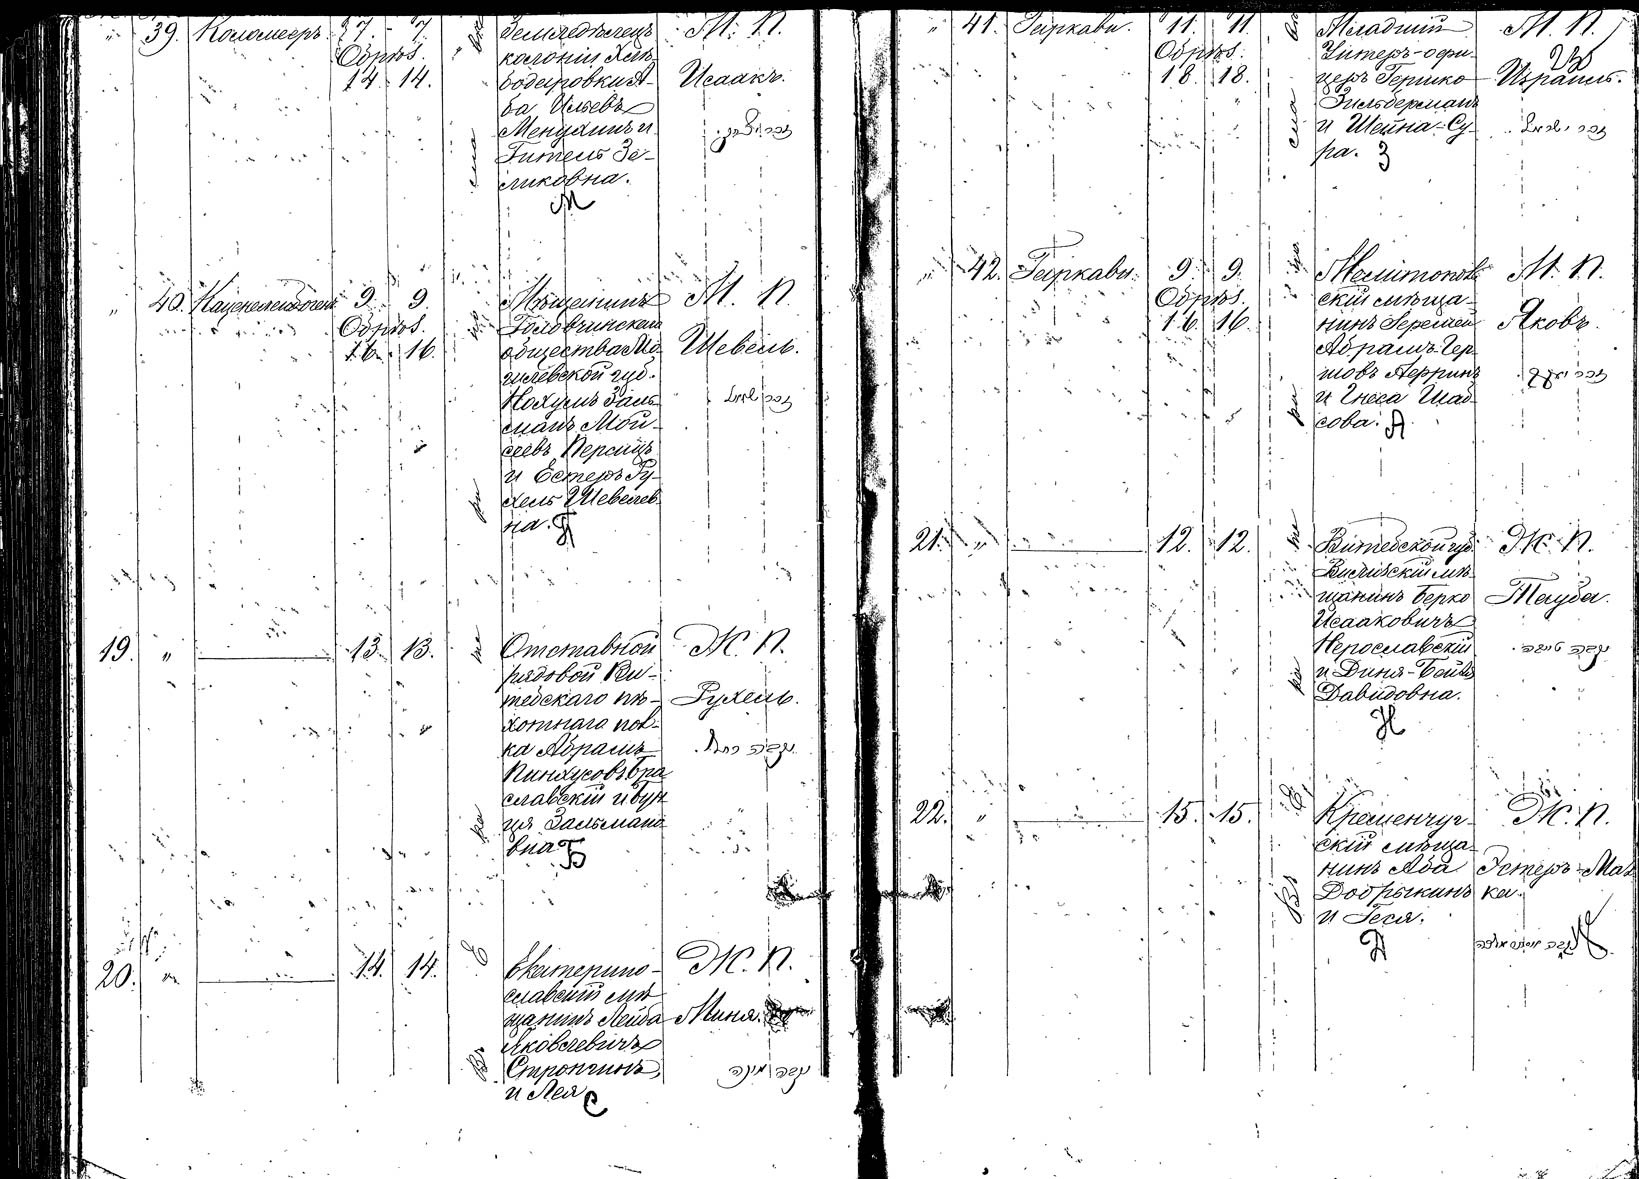 39. Коломееръ. 7. 7.
Обрѣз.
14 14.
Земледѣлецъ
колоніи Хлѣ-
бодаровки А-
ба Ильевъ
Менухинъ и
Гитель Зе-
ликовна.
М
М. П.
Исаакъ.
זכר יצחק.
40. 9. 9.
Обрѣз.
16. 16.
Мѣщанинъ
Головчинскаго
общества Мо-
гилевской губ.
Нохумъ Заль-
манъ Мой-
сеевъ Персицъ
и Естеръ Ру-
хель Шевелев-
на. П
М. П.
Шевель.
זכר
19. „ 13. 13.
Отставной
рядовой Ви-
тебскаго пѣ-
хотнаго пол-
ка Абрамъ
Пинхусовъ Бра-
славскій и Бун-
ця Зальмано-
вна Б
Ж. П.
Рухель.
נקבה רחל.
20. „ 14. 14.
Екатерино-
славскій мѣ-
щанинъ Лейба
Яковлевичъ
Стронгинъ
и Лея С
Ж. П.
Миня.
נקבה מינה
„ 41. Гаркави. 11. 11.
Обрѣз.
18 18.
Младшій
Унтеръ-офи-
церъ Гершко
Зильберманъ
и Шейна-Су-
ра. З
М. П.
Израиль.
זכר ישראל
„ 42. Гаркави. 9. 9.
Обрѣз.
16 16.
Мелитополь-
скій мѣща-
нинъ
Абрамъ-Гер-
шовъ
и Гнеса Шав-
сова. А
М. П.
Яковъ.
זכר יעקב
21. „ 12. 12.
Витебской губ.
Велижскій мѣ-
щанинъ Берко
Исааковичъ
Нерославскій
и Диня-Бейля
Давидовна.
Н
Ж. П.
Тауба.
נקבה טויבה.
22. „ 15. 15.
Кременчуг-
скій мѣща-
нинъ Аба
Добрыкинъ
и Геся.
Д
Ж. П.
Эстеръ-Мал-
ка.
נקבה אסתר מלכה